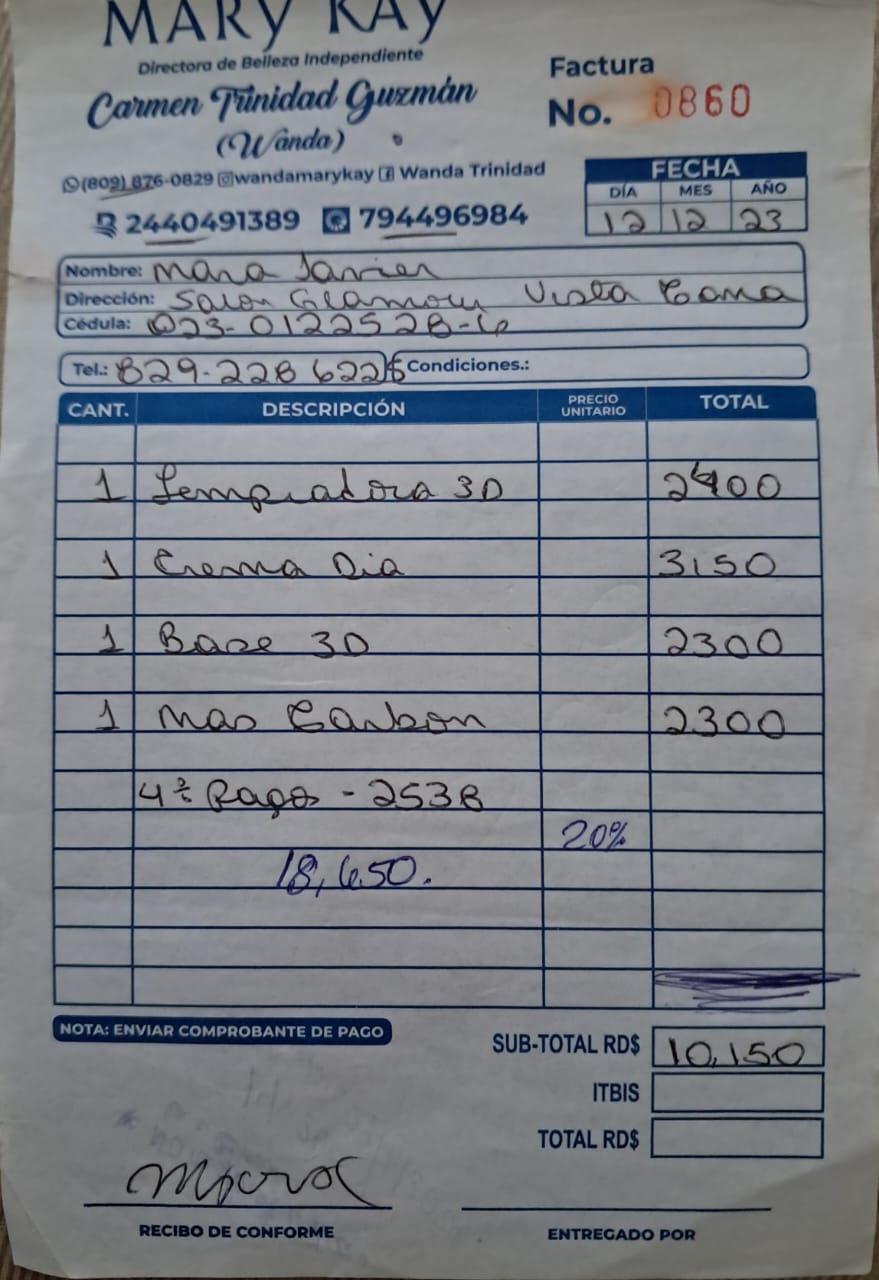 MARY KAY
Directora de Belleza Independiente
Carmen Trinidad Guzmán
(Wanda)
(809) 876-0829 wandamarykay Wanda Trinidad
2440491389 794496984
Factura
No. 0860
FECHA
DÍA MES AÑO
12 12 23
Nombre: Mara Javier
Dirección: Salon Glamour Vista Cana
Cédula: 023-0122528-6
Tel.: 829-228 6225 Condiciones.:
CANT. DESCRIPCIÓN PRECIO UNITARIO TOTAL
1 Lempiadora 3D 2400
1 Crema Dia 3150
1 Base 3D 2300
1 Mas Carbon 2300
4 Pagos - 2538
20%
18,650.
NOTA: ENVIAR COMPROBANTE DE PAGO
SUB-TOTAL RD$ 10,150
ITBIS
TOTAL RD$
RECIBO DE CONFORME
ENTREGADO POR